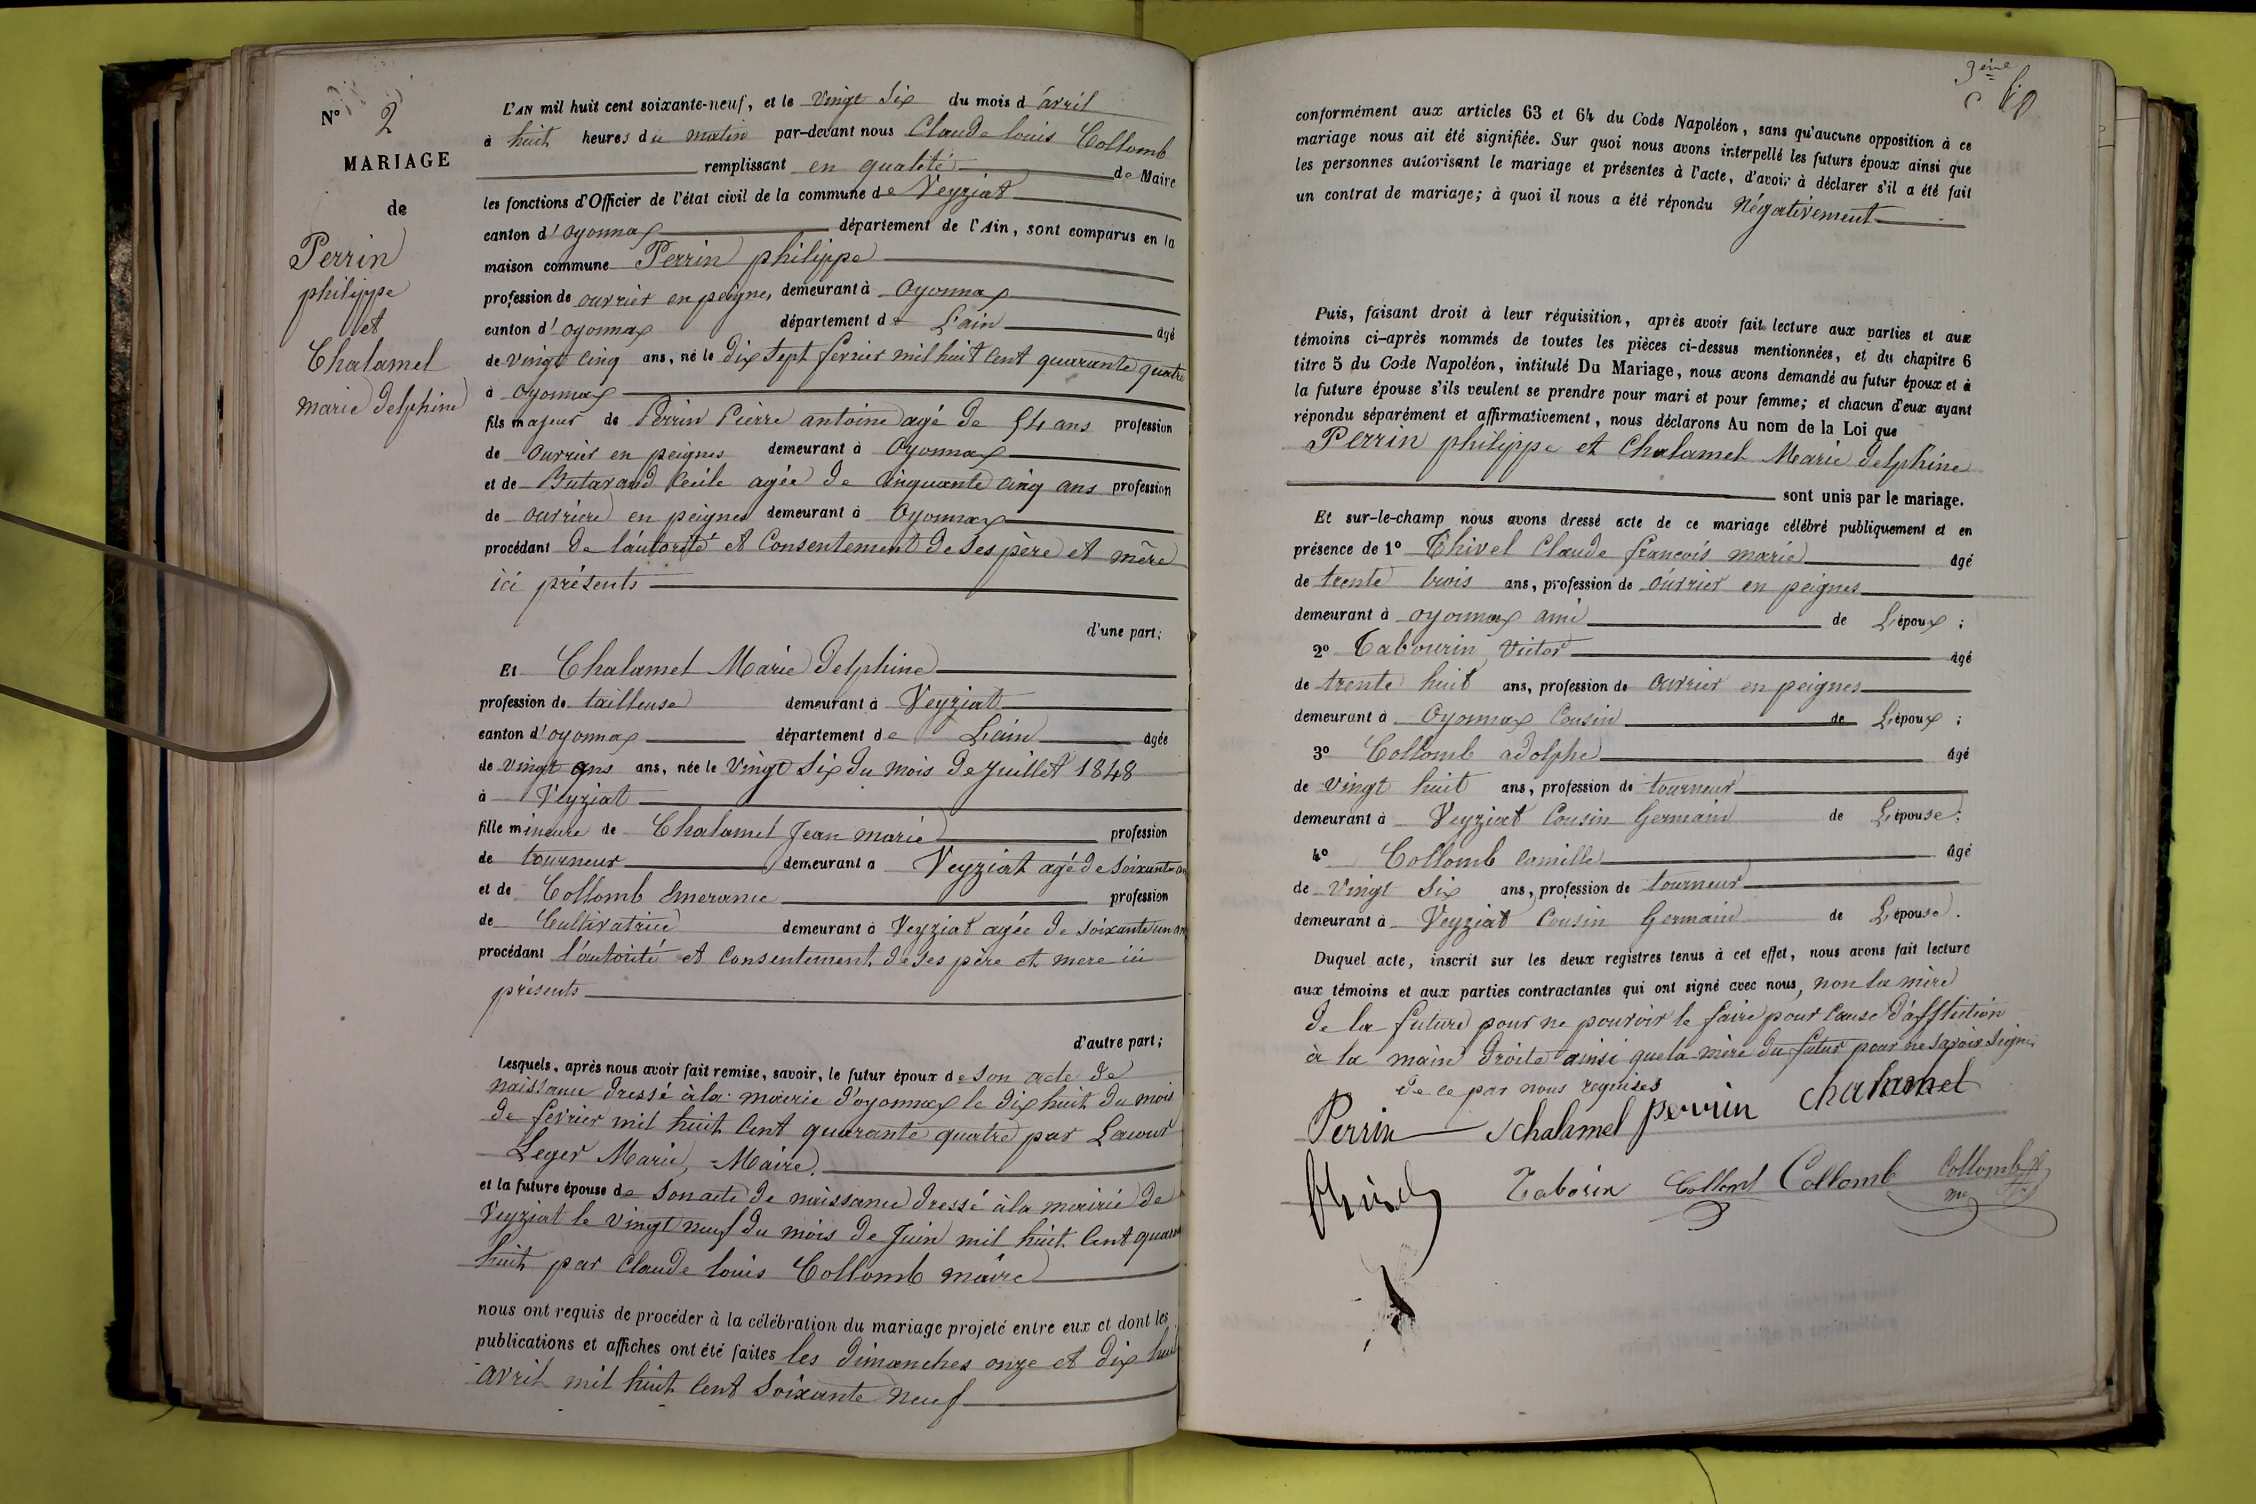 N° 2
MARIAGE
de
Perrin
philippe
et
Chalamel
marie delphine
L'AN mil huit cent soixante-neuf, et le vingt six du mois d'avril
à huit heures du matin par-devant nous Claude louis Collomb
remplissant en qualité de Maire
les fonctions d'Officier de l'état civil de la commune de Veyziat
canton d'oyonnax département de l'Ain, sont comparus en la
maison commune Perrin philippe
profession de ouvrier en peignes demeurant à Oyonnax
canton d'oyonnax département de L'ain âgé
de vingt cinq ans, né le dix sept fevrier mil huit cent quarante quatre
à oyonnax
fils majeur de Perrin Pierre antoine agé de 54 ans profession
de ouvrier en peignes demeurant à Oyonnax
et de Butavand Cécile agée de cinquante cinq ans profession
de ouvriere en peignes demeurant à Oyonnax
procédant de l'autorité et Consentement de ses père et mère
ici présents
d'une part;
Et Chalamel Marie Delphine
profession de tailleuse demeurant à Veyziat
canton d'oyonnax département de Lain âgée
de vingt ans ans, née le vingt six du mois de juillet 1848
à Veyziat
fille mineure de Chalamel Jean marie profession
de tourneur demeurant à Veyziat agé de soixante an
et de Collomb Emerance profession
de Cultivatrice demeurant à Veyziat agée de soixante un an
procédant l'autorité et Consentement de ses père et mere ici
présents
d'autre part;
Lesquels, après nous avoir fait remise, savoir, le futur époux de son acte de
naissance dressé à la mairie d'oyonnax le dix huit du mois
de février mil huit cent quarante quatre par
Leger Marie, Maire.
et la future épouse de son acte de naissance dressé à la mairie de
Veyziat le vingt neuf du mois de Juin mil huit cent quaran
huit par Claude louis Collomb maire
nous ont requis de procéder à la célébration du mariage projeté entre eux et dont les
publications et affiches ont été faites les dimanches onze et dix huit
avril mil huit cent soixante neuf
3ème
conformément aux articles 63 et 64 du Code Napoléon, sans qu'aucune opposition à ce
mariage nous ait été signifiée. Sur quoi nous avons interpellé les futurs époux ainsi que
les personnes autorisant le mariage et présentes à l'acte, d'avoir à déclarer s'il a été fait
un contrat de mariage; à quoi il nous a été répondu Négativement
Puis, faisant droit à leur réquisition, après avoir fait lecture aux parties et aux
témoins ci-après nommés de toutes les pièces ci-dessus mentionnées, et du chapitre 6
titre 5 du Code Napoléon, intitulé Du Mariage, nous avons demandé au futur époux et à
la future épouse s'ils veulent se prendre pour mari et pour femme; et chacun d'eux ayant
répondu séparément et affirmativement, nous déclarons Au nom de la Loi que
Perrin philippe et Chalamel Marie delphine
sont unis par le mariage.
Et sur-le-champ nous avons dressé acte de ce mariage célébré publiquement et en
présence de 1° Thivel Claude francois marie âgé
de trente trois ans, profession de ouvrier en peignes
demeurant à oyonnax ami de L'époux ;
2° Tabourin Victor âgé
de trente huit ans, profession de ouvrier en peignes
demeurant à Oyonnax Cousin de L'époux ;
3° Collomb adolphe âgé
de vingt huit ans, profession de tourneur
demeurant à Veyziat Cousin Germain de L'épouse ;
4° Collomb Camille âgé
de vingt six ans, profession de tourneur
demeurant à Veyziat Cousin Germain de L'épouse .
Duquel acte, inscrit sur les deux registres tenus à cet effet, nous avons fait lecture
aux témoins et aux parties contractantes qui ont signé avec nous, non la mère
de la future pour ne pouvoir le faire pour Cause d'affliction
à la main droite ainsi que la mère du futur pour ne savoir signer
de ce par nous requises
Perrin chalamel perrin chalamel
thivel Taborin Collomb Collomb Collomb
me